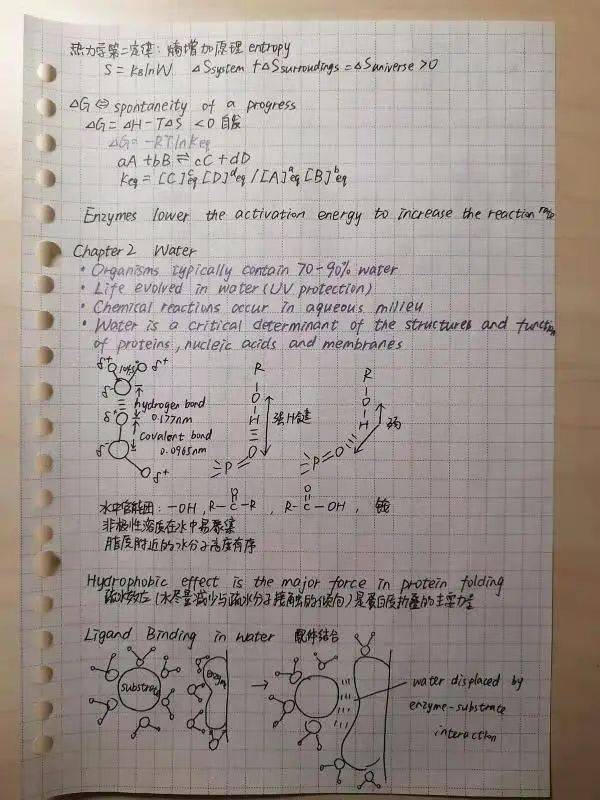 热力学第二定律: 熵增加原理 entropy
S = KBlnW  ΔSsystem + ΔSsurroudings = ΔSuniverse > 0
ΔG ⇔ spontaneity of a progress
ΔG = ΔH - TΔS < 0 自发
ΔG = -RTlnKeq
aA + bB ⇌ cC + dD
Keq = [C]ᶜeq [D]ᵈeq / [A]ᵃeq [B]ᵇeq
Enzymes lower the activation energy to increase the reaction rate
Chapter 2 Water
• Organisms typically contain 70-90% water
• Life evolved in water (UV protection)
• Chemical reactions occur in aqueous milieu
• Water is a critical determinant of the structures and function
of proteins, nucleic acids and membranes
δ+ 104.5° δ+
δ-
hydrogen bond
δ+ 0.177nm
covalent bond
δ- 0.0965nm
δ+
R
O
H
强H键
=P=O
R
O
H
弱
=P=O
水中官能团: -OH, R-C(=O)-R, R-C(=O)-OH,
非极性溶质在水中易聚集
脂质附近的水分子高度有序
Hydrophobic effect is the major force in protein folding
疏水效应(水尽量减少与疏水分子接触的倾向)是蛋白质折叠的主要力量
Ligand Binding in water 配体结合
substrate
enzyme
→
water displaced by
enzyme-substrate
interaction